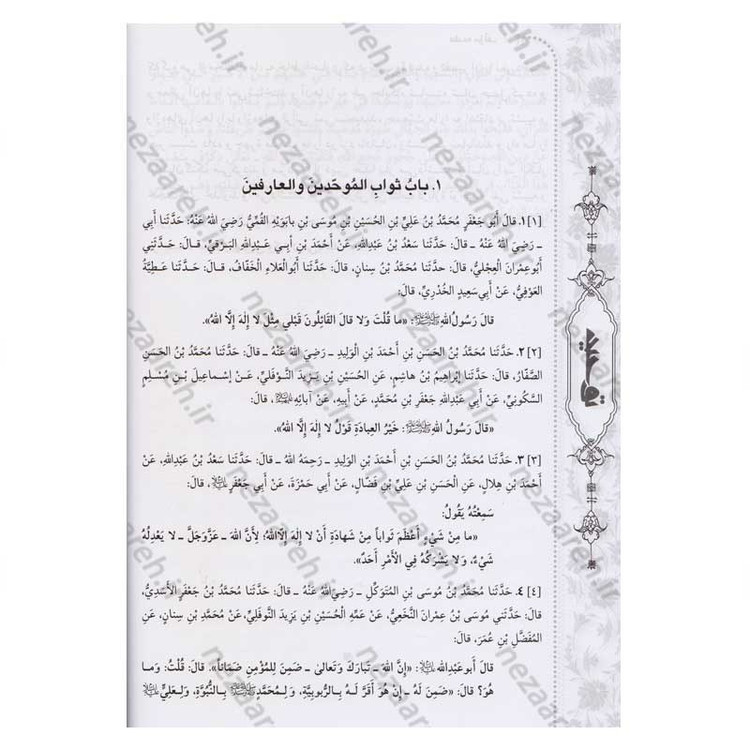 ١. بابُ ثوابِ المُوحّدينَ والعارفينَ
[١] ١. قالَ أَبُو جَعْفَرٍ مُحَمَّدُ بْنُ عَلِيِّ بْنِ الحُسَيْنِ بْنِ مُوسَى بْنِ بابَوَيْهِ القُمِّيُّ رَضِيَ اللهُ عَنْهُ: حَدَّثَنا أَبِي
ـ رَضِيَ اللهُ عَنْهُ ـ قالَ: حَدَّثَنا سَعْدُ بْنُ عَبْدِاللهِ، عَنْ أَحْمَدَ بْنِ أَبِي عَبْدِاللهِ البَرْقِيِّ، قالَ: حَدَّثَنِي
أَبُوعِمْرانَ العِجْلِيُّ، قالَ: حدَّثَنا مُحَمَّدُ بْنُ سِنانٍ، قالَ: حَدَّثَنا أَبُوالعَلاءِ الخَفّافُ، قالَ: حَدَّثَنا عَطِيَّةُ
العَوْفِيُّ، عَنْ أَبِي سَعِيدٍ الخُدْرِيِّ، قالَ:
قالَ رَسُولُ اللهِ ﷺ: «ما قُلْتُ وَلا قالَ القائِلُونَ قَبْلِي مِثْلَ لا إِلٰهَ إِلَّا اللهُ».
[٢] ٢. حَدَّثَنا مُحَمَّدُ بْنُ الحَسَنِ بْنِ أَحْمَدَ بْنِ الوَلِيدِ ـ رَضِيَ اللهُ عَنْهُ ـ قالَ: حَدَّثَنا مُحَمَّدُ بْنُ الحَسَنِ
الصَّفّارُ، قالَ: حَدَّثَنا إِبْراهِيمُ بْنُ هاشِمٍ، عَنِ الحُسَيْنِ بْنِ يَزِيدَ النَّوْفَلِيِّ، عَنْ إِسْماعِيلَ بْنِ مُسْلِمٍ
السَّكُونِيِّ، عَنْ أَبِي عَبْدِاللهِ جَعْفَرِ بْنِ مُحَمَّدٍ، عَنْ أَبِيهِ، عَنْ آبائِهِ، قالَ:
«قالَ رَسُولُ اللهِ ﷺ: خَيْرُ العِبادَةِ قَوْلُ لا إِلٰهَ إِلَّا اللهُ».
[٣] ٣. حَدَّثَنا مُحَمَّدُ بْنُ الحَسَنِ بْنِ أَحْمَدَ بْنِ الوَلِيدِ ـ رَحِمَهُ اللهُ ـ قالَ: حَدَّثَنا سَعْدُ بْنُ عَبْدِاللهِ، عَنْ
أَحْمَدَ بْنِ هِلالٍ، عَنِ الحَسَنِ بْنِ عَلِيِّ بْنِ فَضّالٍ، عَنْ أَبِي حَمْزَةَ، عَنْ أَبِي جَعْفَرٍ، قالَ:
سَمِعْتُهُ يَقُولُ:
«ما مِنْ شَيْءٍ أَعْظَمَ ثَواباً مِنْ شَهادَةِ أَنْ لا إِلٰهَ إِلَّا اللهُ؛ لِأَنَّ اللهَ ـ عَزَّوَجَلَّ ـ لا يَعْدِلُهُ
شَيْءٌ، وَلا يَشْرَكُهُ فِي الأَمْرِ أَحَدٌ».
[٤] ٤. حَدَّثَنا مُحَمَّدُ بْنُ مُوسَى بْنِ المُتَوَكِّلِ ـ رَضِيَ اللهُ عَنْهُ ـ قالَ: حَدَّثَنا مُحَمَّدُ بْنُ جَعْفَرٍ الأَسَدِيُّ،
قالَ: حَدَّثَنِي مُوسَى بْنُ عِمْرانَ النَّخَعِيُّ، عَنْ عَمِّهِ الحُسَيْنِ بْنِ يَزِيدَ النَّوْفَلِيِّ، عَنْ مُحَمَّدِ بْنِ سِنانٍ، عَنِ
المُفَضَّلِ بْنِ عُمَرَ، قالَ:
قالَ أَبُوعَبْدِاللهِ: «إِنَّ اللهَ ـ تَبارَكَ وَتَعالىٰ ـ ضَمِنَ لِلْمُؤْمِنِ ضَماناً». قالَ: قُلْتُ: وَما
هُوَ؟ قالَ: «ضَمِنَ لَهُ ـ إِنْ هُوَ أَقَرَّ لَهُ بِالرُّبُوبِيَّةِ، وَلِمُحَمَّدٍ ﷺ بِالنُّبُوَّةِ، وَلِعَلِيٍّ
توحید
nezaareh.ir